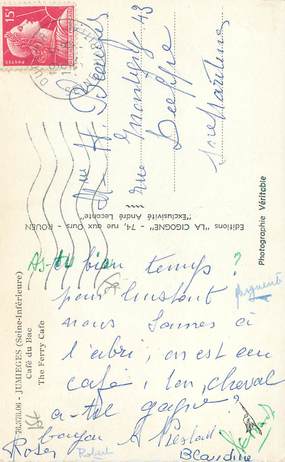 15f
POSTES
Mme H. Beaufils
rue Montigny 43
Dieppe
Seine Maritime
Editions "LA CIGOGNE" - 74, rue aux Ours - ROUEN
"Exclusivité André Leconte"
Photographie Véritable
76.378.06 - JUMIEGES (Seine-Inférieure)
Café du Bac
The Ferry Cafe
As-tu bien temps ?
pour l'instant
nous sommes à
l'abri, on est au
café, ton cheval
a-t-il gagné ?
A
Blandine
Roser
Robert